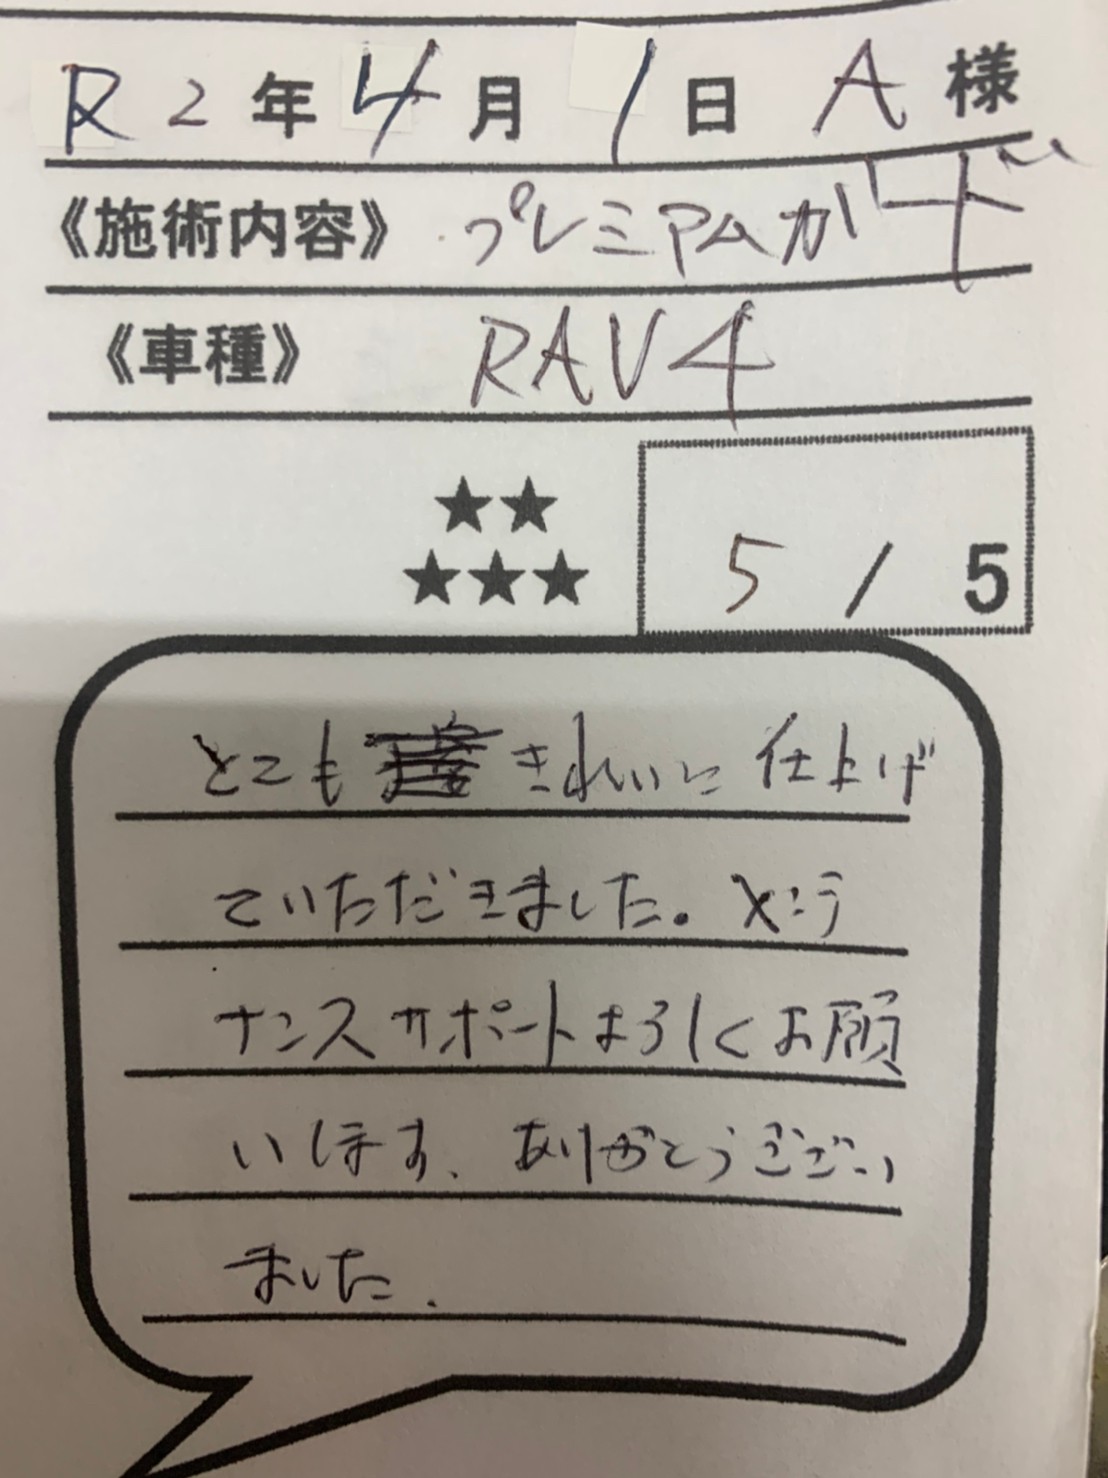 R2年4月1日 A様
《施術内容》 プレミアムガード
《車種》 RAV4
★★
★★★ 5/5
とても きれいに仕上げ
ていただきました。メンテ
ナンスサポートよろしくお願
いします、ありがとうござい
ました.